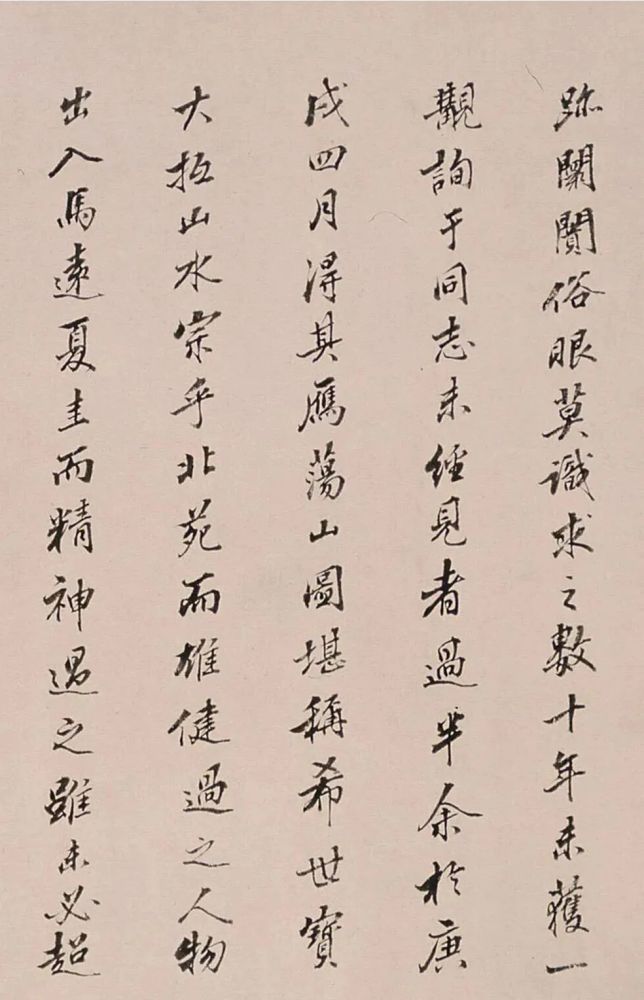 跡闌闠俗眼莫識求之數十年未獲一
覯詢于同志未經見者過半余於庚
戌四月得其鴈蕩山圖堪稱希世寶
大抵山水宗乎北苑而雄健過之人物
出入馬遠夏圭而精神過之雖未必超